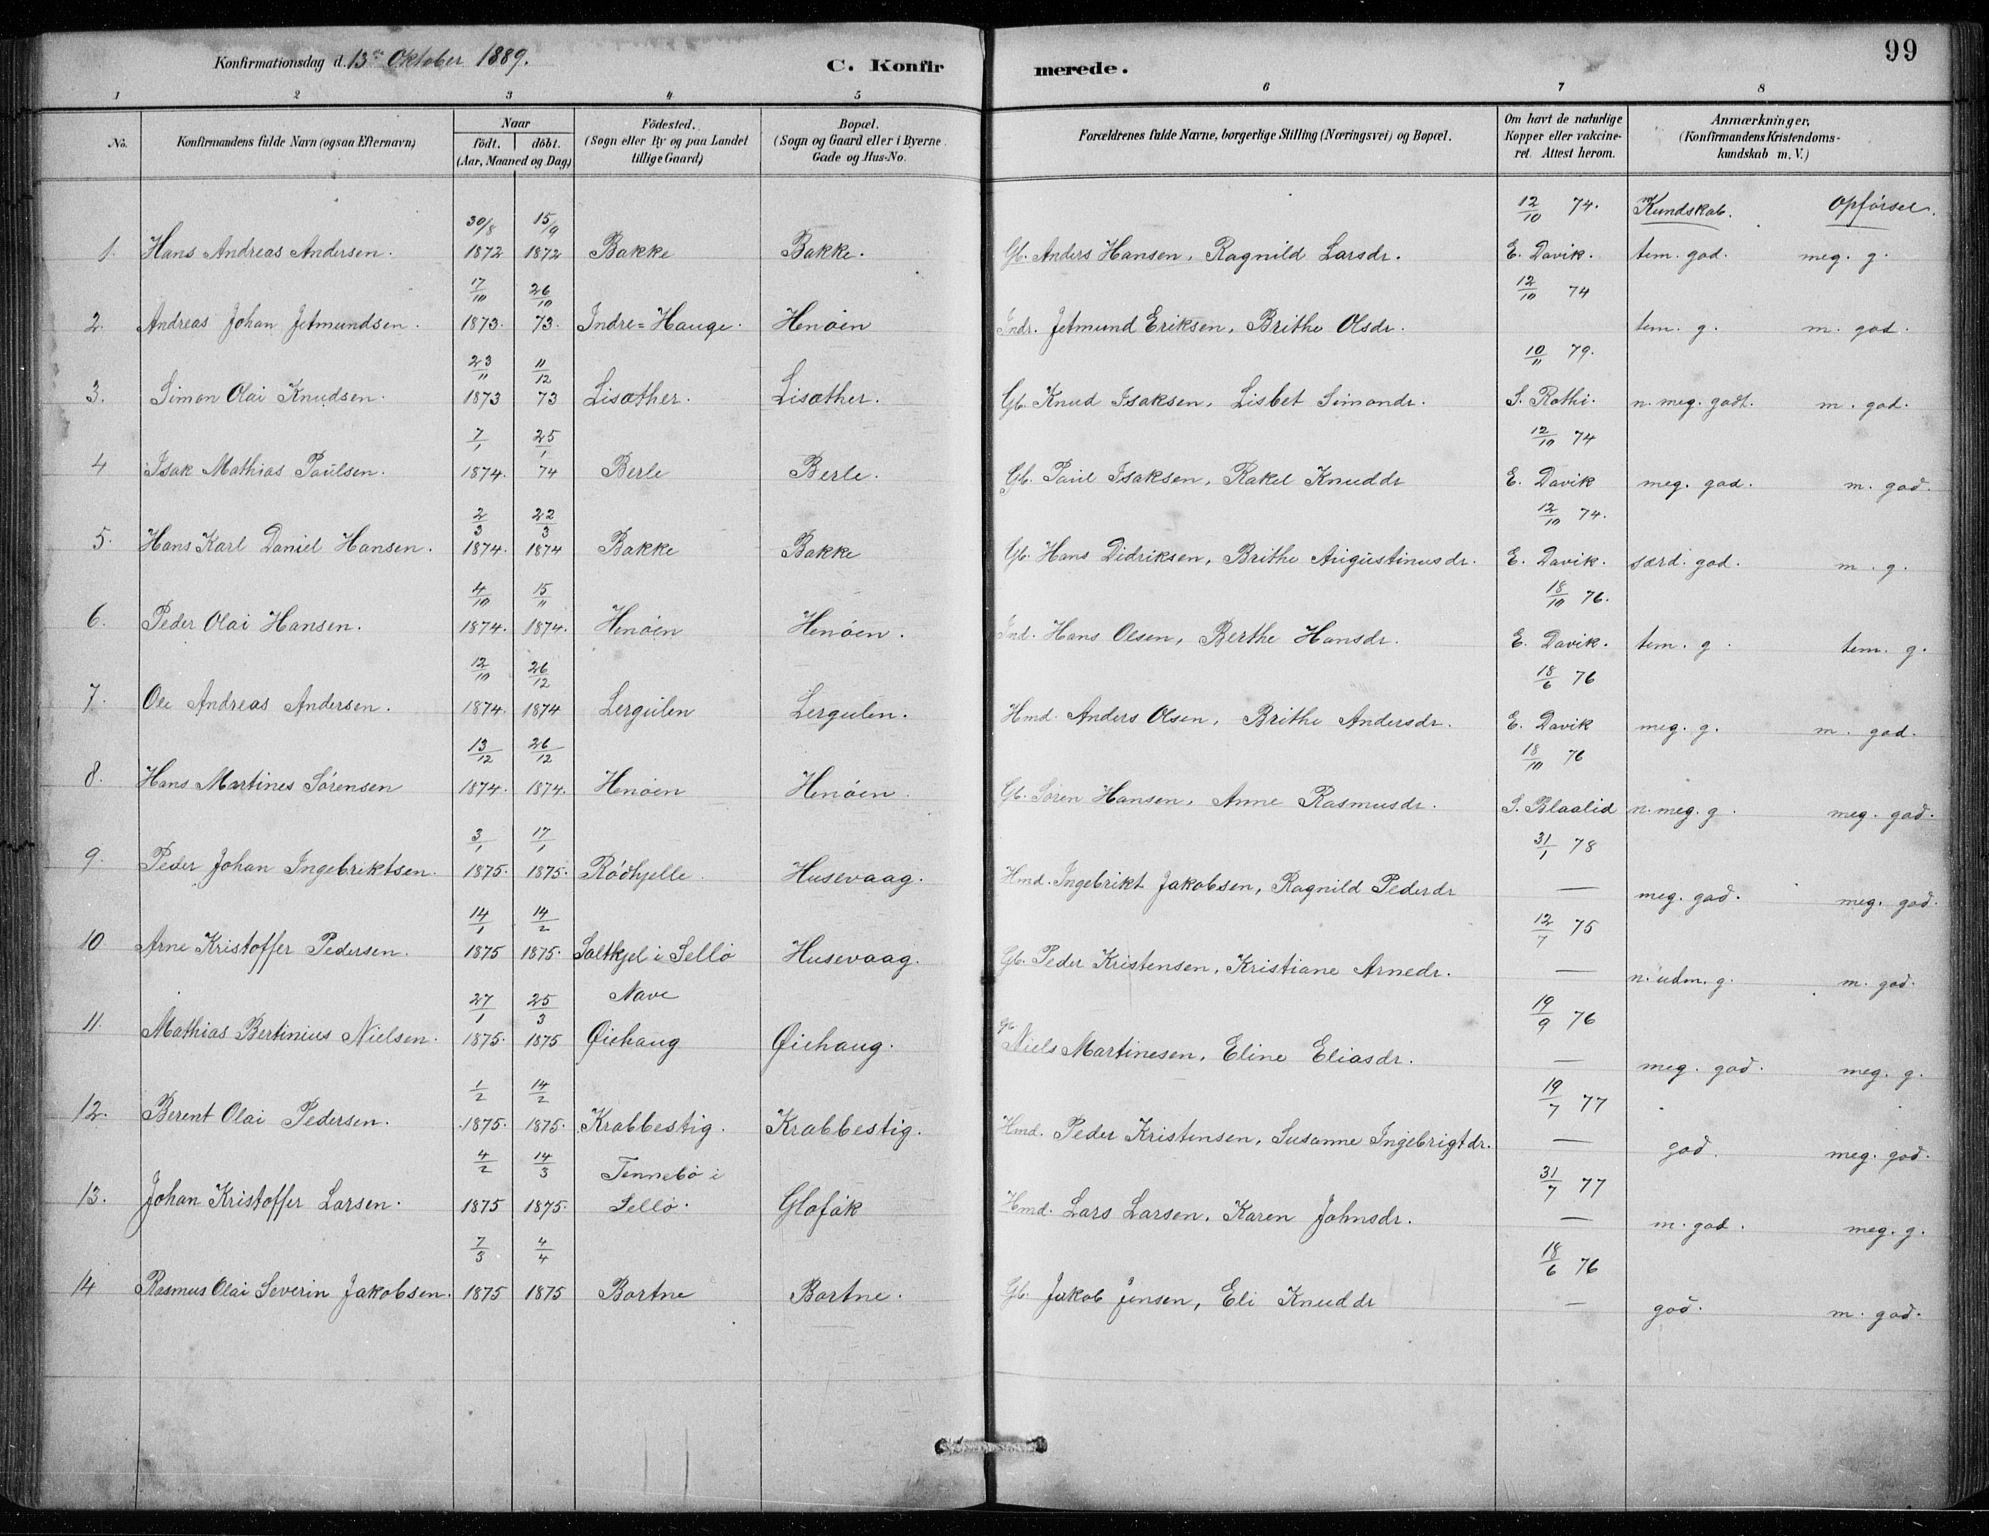 Konfirmationsdag d. 13de Oktober 1889. C. Konfirmerede. 99
1 2 3 4 5 6 7 8
No. Konfirmandens fulde Navn (ogsaa Efternavn) Naar födt. döbt. (Aar, Maaned og Dag) Födested. (Sogn eller By og paa Landet tillige Gaard) Bopæl. (Sogn og Gaard eller i Byerne Gade og Hus-No. Forældrenes fulde Navne, borgerlige Stilling (Næringsvei) og Bopæl. Om havt de naturlige Kopper eller vakcineret. Attest herom. Anmærkninger, (Konfirmandens Kristendomskundskab m. V.)
30/8 15/9 12/10 74. Kundskab. Opförsel.
1. Hans Andreas Andersen. 1872 1872 Bakke Bakke. Gb. Anders Hansen, Ragnild Larsdr. E. Davik. tem. god. meg. g.
17/10 26/10 12/10 74
2. Andreas Johan Jetmundsen. 1873. 73. Indre=Hauge. Henöen Indr. Jetmund Eriksen, Brithe Olsdr. tem. g. m. god.
23/11 11/12 10/11 79.
3. Simon Olai Knudsen. 1873 73 Lisæther. Lisæther. Gb. Knud Isaksen, Lisbet Simondr. S. Rothi. n. meg. godt. m. god.
7/1 25/1 12/10 74
4 Isak Mathias Paulsen. 1874. 74 Berle Berle. Gb. Paul Isaksen, Rakel Knuddr E. Davik meg. god. m. god.
2/3 22/3 12/10 74.
5. Hans Karl Daniel Hansen. 1874. 1874 Bakke Bakke Gb. Hans Didriksen, Brithe Augustinusdr. E. Davik. særd. god. m. g.
4/10 15/11 18/10 76.
6. Peder Olai Hansen. 1874. 1874. Henöen Henöen. Ind. Hans Olsen, Berthe Hansdr. E. Davik. tem. g. tem. g.
12/10 26/12 18/6 76
7. Ole Andreas Andersen. 1874. 1874 Lergulen Lergulen. Hmd. Anders Olsen, Brithe Andersdr. E. Davik meg. g. m. god.
13/12 26/12 18/10 76
8. Hans Martines Sörensen 1874. 1874. Henöen Henöen. Gb. Sören Hansen, Anne Rasmusdr. S. Blaalid n. meg. g. meg. god.
3/1 17/1 31/1 78
9. Peder Johan Ingebriktsen. 1875. 1875. Rödhjelle. Husevaag. Hmd. Ingebrikt Jakobsen, Ragnild Pederdr — meg. god. meg. god.
14/1 14/2 12/7 75
10 Arne Kristoffer Pedersen. 1875 1875. Saltkjel i Sellö Husevaag. Gb. Peder Kristensen, Kristiane Arnedr. — n. udm. g. m. god.
27/1 25/3 Nave 19/9 76
11. Mathias Bertinius Nielsen. 1875. 1875 Øiehaug Øiehaug. Gb. Niels Martinesen, Eline Eliasdr. — meg. god. meg. g.
1/2 14/2 19/7 77
12. Berent Olai Pedersen. 1875. 1875. Krabbestig. Krabbestig. Hmd. Peder Kristensen, Susanne Ingebrigtdr. — god. meg. god.
4/2 14/3 Tennebö i 31/7 77
13. Johan Kristoffer Larsen. 1875 1875. Sellö. Glafök Hmd. Lars Larsen, Karen Johnsdr. — m. god. meg. g.
7/3 4/4 18/6 76
14 Rasmus Olai Severin Jakobsen. 1875 1875 Bortne Bortne. Gb. Jakob Jensen, Eli Knuddr — god. m. god.